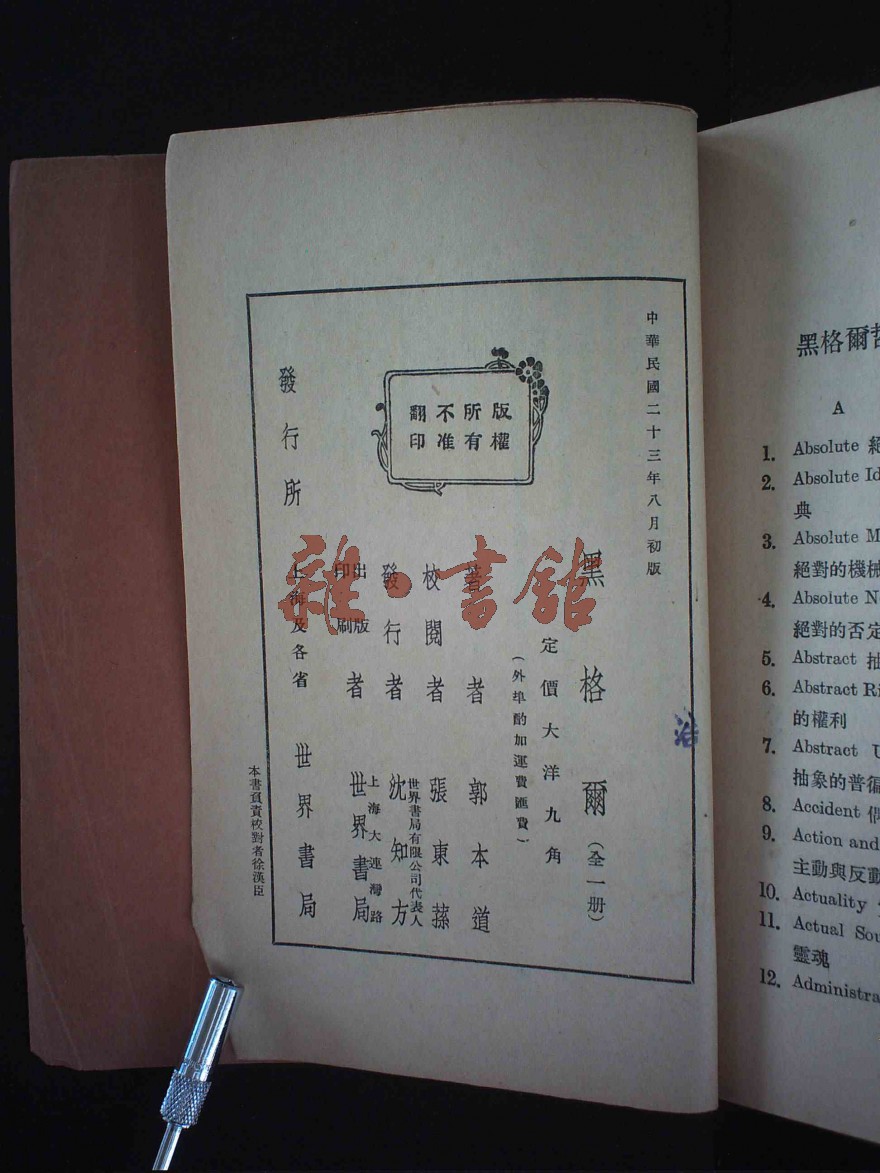 中華民國二十三年八月初版
黑格爾(全一册)
定價大洋九角
(外埠酌加運費匯費)
版權
所有
不准
翻印
著者 郭本道
校閱者 張東蓀
發行者 世界書局有限公司代表人 沈知方
出版印刷者 上海大連灣路 世界書局
發行所 上海及各省 世界書局
本書負責校對者徐漢臣
雜·書館
黑格爾哲
A
1. Absolute 絕
2. Absolute Id
典
3. Absolute M
絕對的機械
4. Absolute N
絕對的否定
5. Abstract 抽
6. Abstract Ri
的權利
7. Abstract U
抽象的普徧
8. Accident 偶
9. Action and
主動與反動
10. Actuality
11. Actual Sou
靈魂
12. Administra